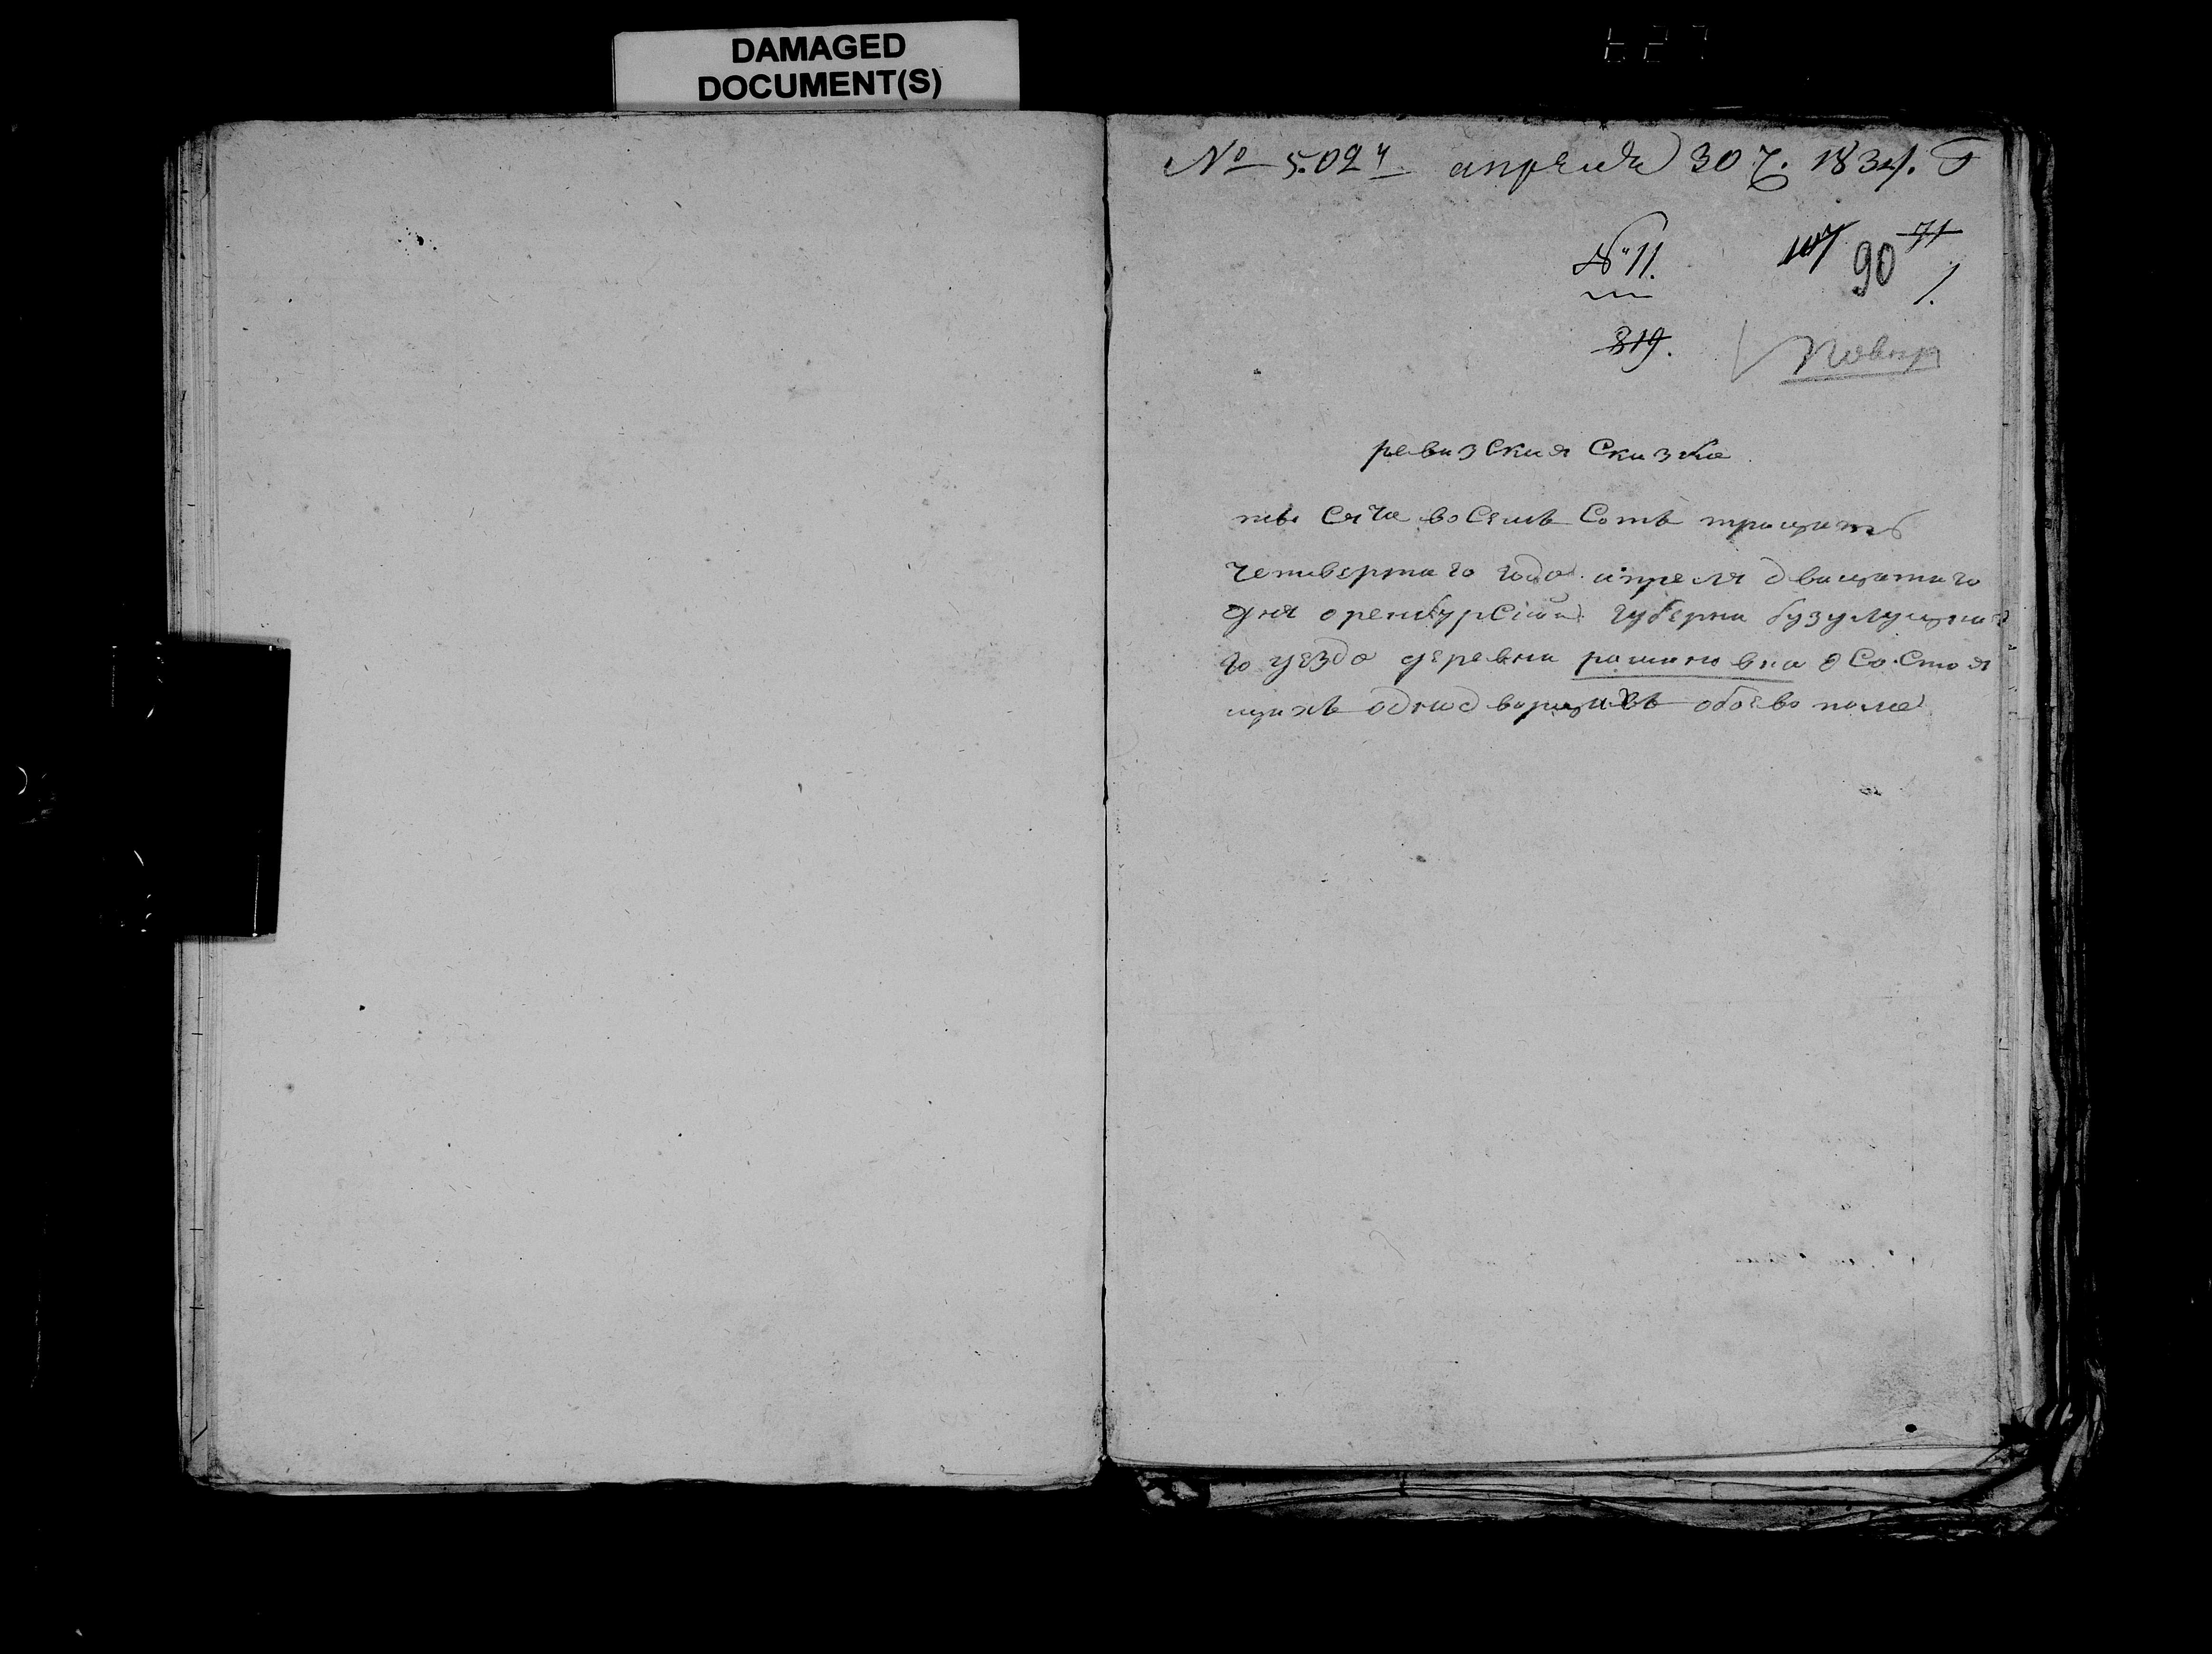 DAMAGED
DOCUMENT(S)
№ 5.024 апреля 30 ч. 1834. Г
№ 11.
107 90 71
1.
819.
ревизския Сказка
ты Сяча восемь Сотъ трицать
четивертаго года апреля двацатаго
дня оренбурской губерни бузулуцка
го уезда деревни рамановки о Состоя
щихъ однодворцахъ обоево пола